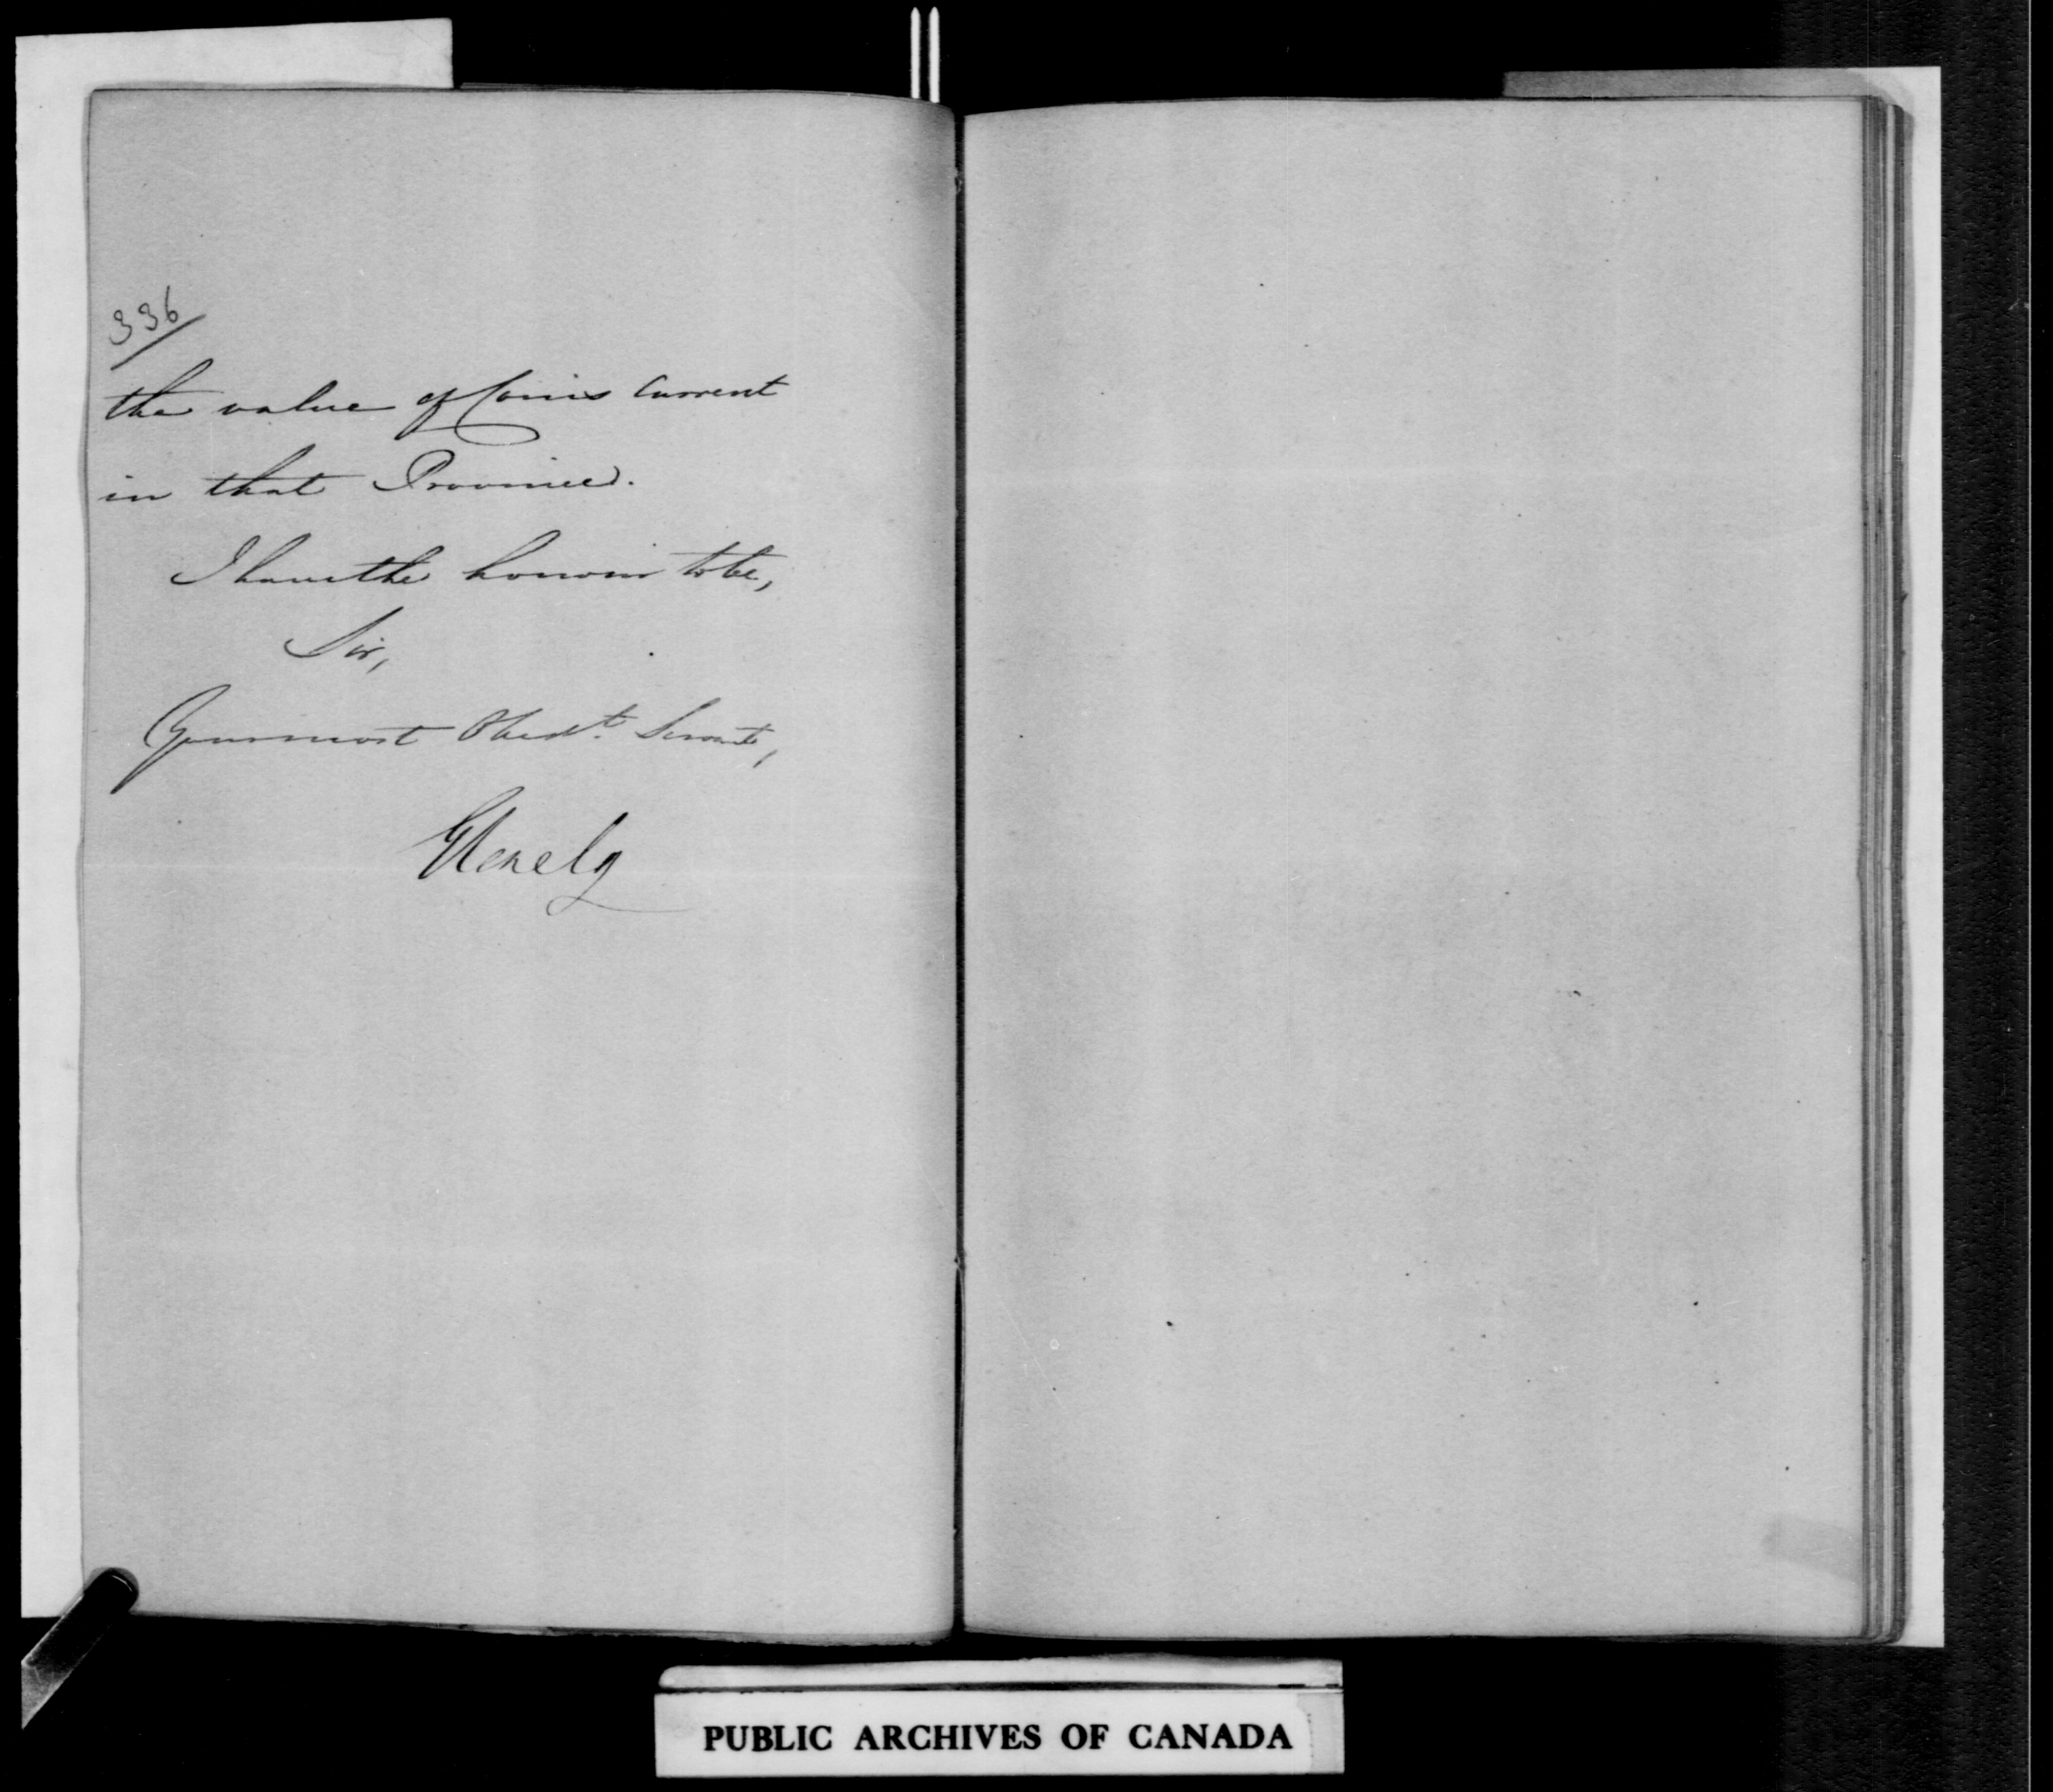 336
the value of Coins Current
in that Province.
I have the honour to be,
Sir,
Your most Obed.t Servant,
Glenelg
PUBLIC ARCHIVES OF CANADA